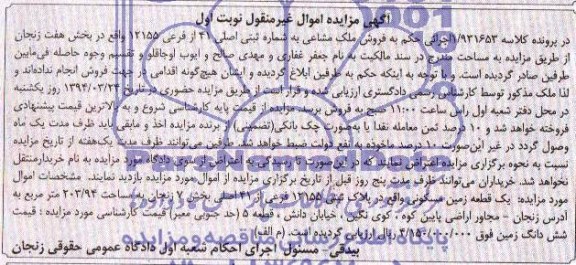 آگهی مزایده اموال غیرمنقول نوبت اول
در پرونده کلاسه 1/921653اجرائی حکم به فروش ملک مشاعی به شماره ثبتی اصلی 41 از فرعی 12155 واقع در بخش هفت زنجان
از طریق مزایده به مساحت مندرج در سند مالکیت به نام جعفر غفاری و مهدی صالح و ایوب اوجاقلو و تقسیم وجوه حاصله فی‌مابین
طرفین صادر گردیده است. و با توجه به اینکه حکم به طرفین ابلاغ گردیده و ایشان هیچ‌گونه اقدامی در جهت فروش انجام نداده‌اند و
لذا ملک مذکور توسط کارشناس رسمی دادگستری ارزیابی شده و قرار است از طریق مزایده حضوری در تاریخ 1394/03/24 روز یکشنبه
در محل دفتر شعبه اول راس ساعت 11:00 صبح به فروش برسد. مزایده از قیمت پایه کارشناسی شروع و به بالاترین قیمت پیشنهادی
فروخته خواهد شد و 10 درصد ثمن معامله نقدا یا به‌صورت چک بانکی(تضمینی) از برنده مزایده اخذ و مابقی باید ظرف مدت یک ماه
وصول گردد در غیر این‌صورت 10 درصد ماخوذه به نفع دولت ضبط خواهد شد. طرفین می‌توانند ظرف مدت یک‌هفته از تاریخ مزایده
نسبت به نحوه برگزاری مزایده اعتراض نمایند که در این‌صورت تا رسیدگی به اعتراض از سوی دادگاه مورد مزایده به نام خریدارمنتقل
نخواهد شد. خریداران می‌توانند ظرف مدت پنج روز قبل از تاریخ برگزاری مزایده از اموال مورد مزایده بازدید نمایند. مشخصات اموال
مورد مزایده: یک قطعه زمین مسکونی واقع در پلاک ثبتی 12155 فرعی از 41 اصلی بخش 7 زنجان به مساحت 203/94 متر مربع به
آدرس زنجان - مجاور اراضی پایین کوه ، کوی نگین ، خیابان دانش ، قطعه 5 (حد جنوبی معبر) قیمت کارشناسی مورد مزایده : قیمت
شش دانگ زمین فوق 3/150/000/000 ریال ارزیابی گردیده است. (م الف)
بیدقی- مسئول اجرای احکام شعبه اول دادگاه عمومی حقوقی زنجان